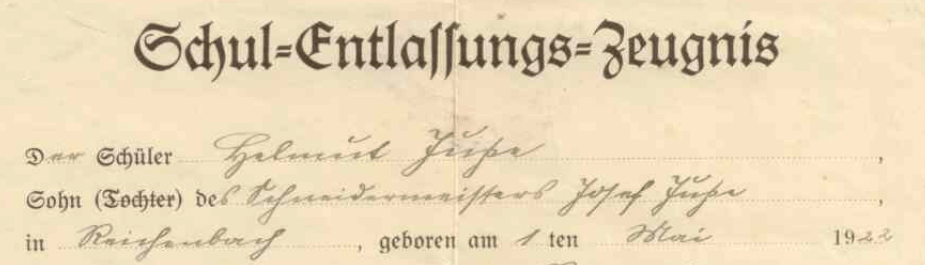 Schul-Entlassungs-Zeugnis
Der Schüler Helmut Juße,
Sohn (Tochter) des Schneidermeisters Josef Juße,
in Reichenbach, geboren am 1 ten Mai 1922